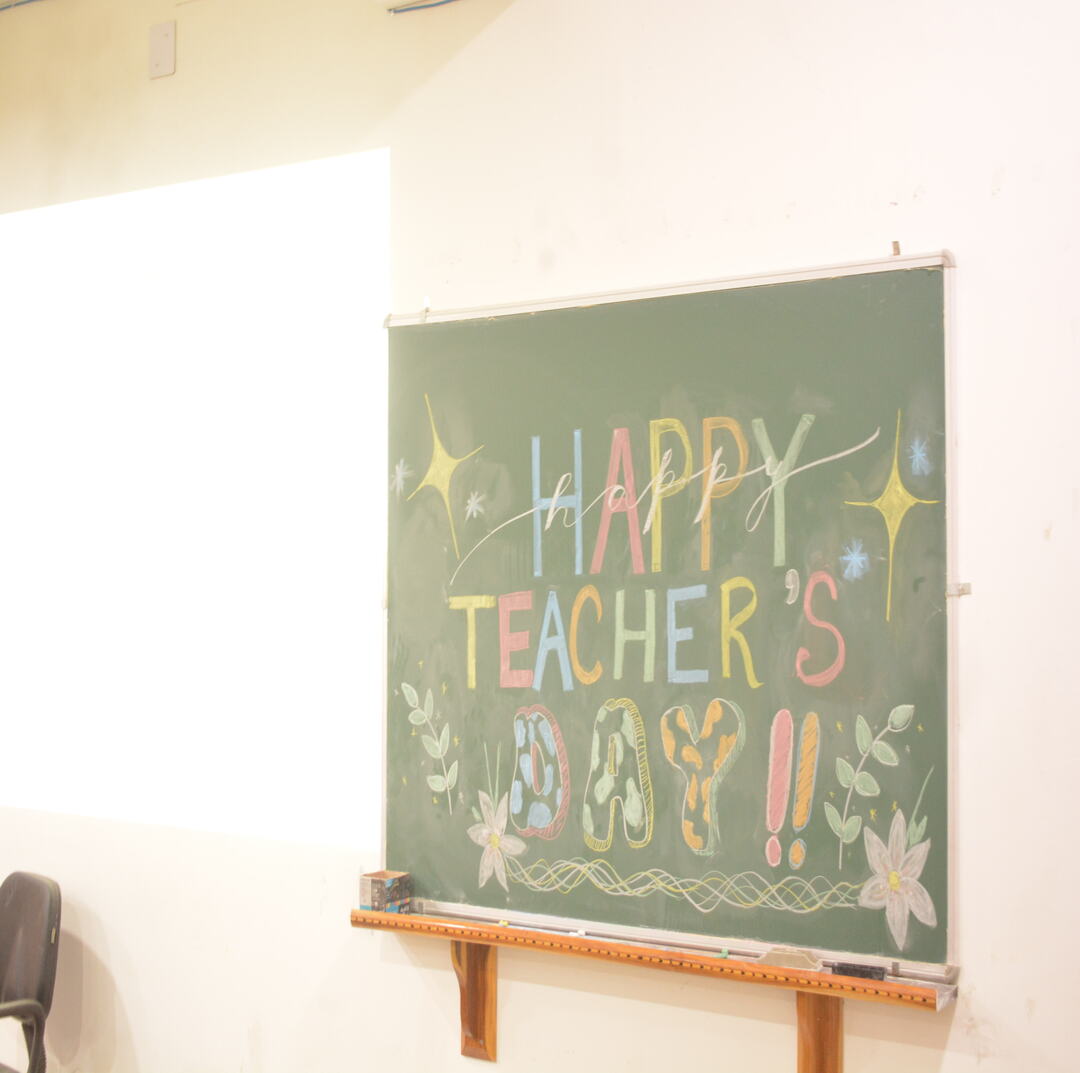 HAPPY
happy
TEACHER'S
DAY!!